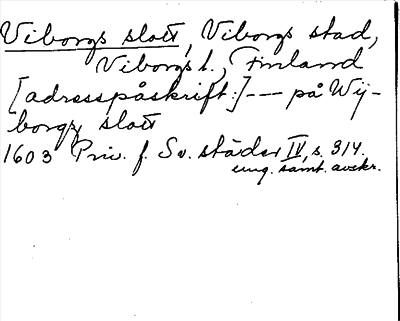 Viborgs slott, Viborgs stad,
Viborgs l., Finland
[adresspåskrift:] --- på Wij-
borgs slott
1603 Priv. f. Sv. städer IV, s. 314.
enl. samt. avskr.